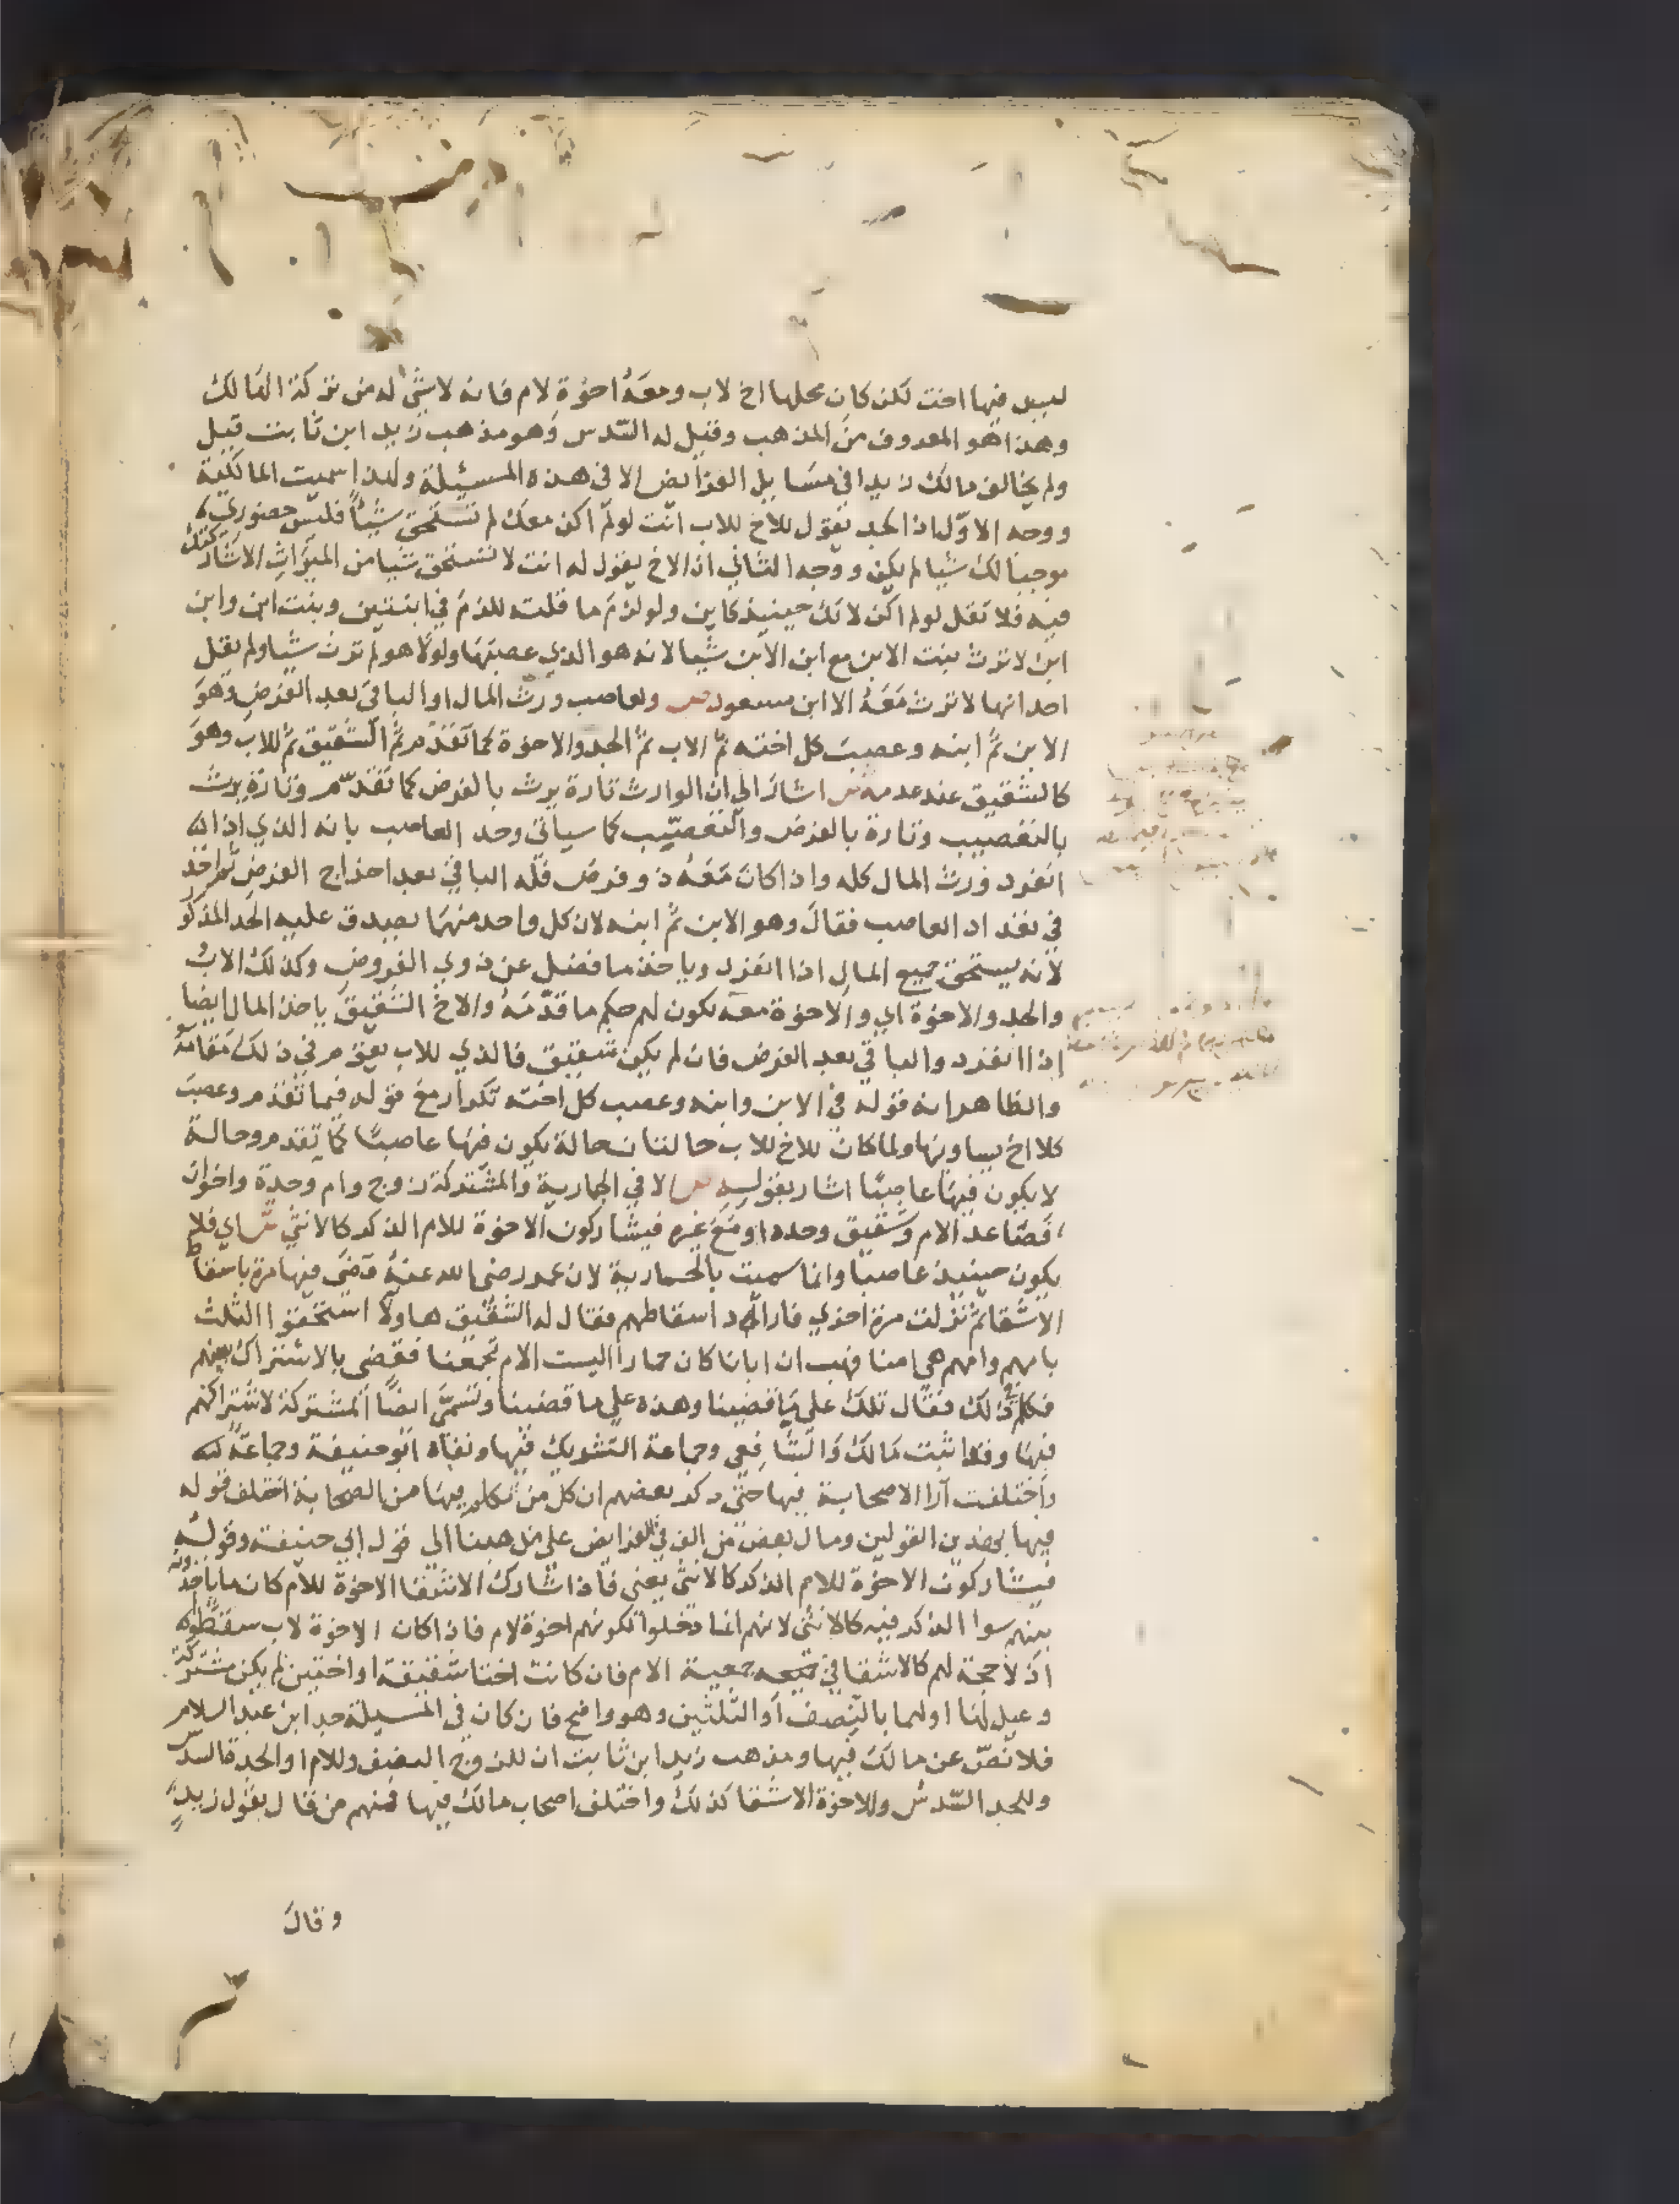 ليس فيها اخت لكن كان محلها اخ لاب ومعه اخوة لام فانه لا شئ له من تركة الهالك
وهذا هو المعروف من المذهب وقيل له السدس وهو مذهب زيد ابن ثابت قيل
ولم يخالف مالك زيدا في مسايل الفرايض الا في هذه المسيلة ولذا سميت المالكية
ووجه الاول ان الجد يقول للاخ للاب انت لو لم اكن معك لم تستحق شيا فليس حضوري
موجبا لك شيا لم يكن ووجه الثاني ان الاخ يقول له انت لا تستحق شيا من الميراث الا شاركتك
فيه فلا تقل لو لم اكن لانك حينيذ كاين ولو لزم ما قلت للزم في ابنتين وبنت ابن وابن
ابن لا ترث بنت الابن مع ابن الابن شيا لانه هو الذي عصبها ولولا هو لم ترث شيا ولم يقل
احد انها لا ترث معه الا ابن مسعود ص ولعاصب ورث المال او الباقي بعد الفرض وهو
الابن ثم ابنه وعصب كل اخته ثم الاب ثم الجد والاخوة كما تقدم ثم الشقيق ثم للاب وهو
كالشقيق عند عدمه ش اشار الي ان الوارث تارة يرث بالفرض كما تقدم وتارة يرث
بالتعصيب وتارة بالفرض والتعصيب كما سياتي وحد العاصب بانه الذي اذا
انفرد ورث المال كله واذا كان معه ذو فرض فله الباقي بعد اخراج الفرض ثم اخذ
في تعداد العاصب فقال وهو الابن ثم ابنه لان كل واحد منهما يصدق عليه الحد المذكو
لانه يستحق جميع المال اذا انفرد وياخذ ما فضل عن ذوي الفروض وكذلك الاب
والجد والاخوة اي والاخوة معه يكون لهم حكم ما قدمه والاخ الشقيق ياخذ المال ايضا
اذا انفرد والباقي بعد الفرض فان لم يكن شقيق فالذي للاب يقوم في ذلك مقامه
والظاهر انه قوله في الابن وابنه وعصب كل اخته تكرار مع قوله فيما تقدم وعصب
كلا اخ يساويها ولما كان للاخ للاب حالتان حالة يكون فيها عاصبا كما تقدم وحالة
لا يكون فيها عاصبا اشار بقوله ص الا في الحمارية والمشتركة زوج وام وجدة واخوان
فصاعدا لام وشقيق وحده او مع غيره فيشاركون الاخوة للام الذكر كالانثي ش اي فلا
يكون حينيذ عاصبا وانما سميت بالحمارية لان عمر رضي الله عنه قضي فيها مرة باسقاط
الاشقا ثم نزلت مرة اخري فاراد اسقاطهم فقال له الشقيق هاولا استحقوا الثلث
بامهم وامهم هي امنا فهب ان ابانا كان حمارا اليست الام تجمعنا فقضي بالاشتراك بينهم
فكلم في ذلك فقال تلك علي ما قضينا وهذه علي ما قضينا وتسمي ايضا المشتركة لاشتراكهم
فيها وقد اثبت مالك والشافعي وجماعة التشريك فيها ونفاه ابو حنيفة وجماعة
واختلفت آرا الاصحابة فيها حتي ذكر بعضهم ان كل من تكلم فيها من الصحابة اختلف قوله
فيها بهذين القولين ومال بعض من الف في الفرايض علي مذهبنا الي قول ابي حنيفة وقوله
فيشاركون الاخوة للام الذكر كالانثي يعني فاذا شارك الاشقا الاخوة للام كان ما ياخذونه
بينهم سوا الذكر فيه كالانثي لانهم انما دخلوا بكونهم اخوة لام فاذا كان الاخوة لاب سقطوا
اذ لا حجة لهم كالاشقا في جمعية الام فان كانت اختا شقيقة او اختين لم يكن مشتركة
وعيل لها او لهما بالنصف او الثلثين وهو واضح فان كان في المسيلة جد ابن عبد السلام
فلا نص عن مالك فيها ومذهب زيد ابن ثابت ان للزوج النصف وللام او الجدة السدس
وللجد السدس وللاخوة الاشقا كذلك واختلف اصحاب مالك فيها فمنهم من قال بقول زيد
وقال